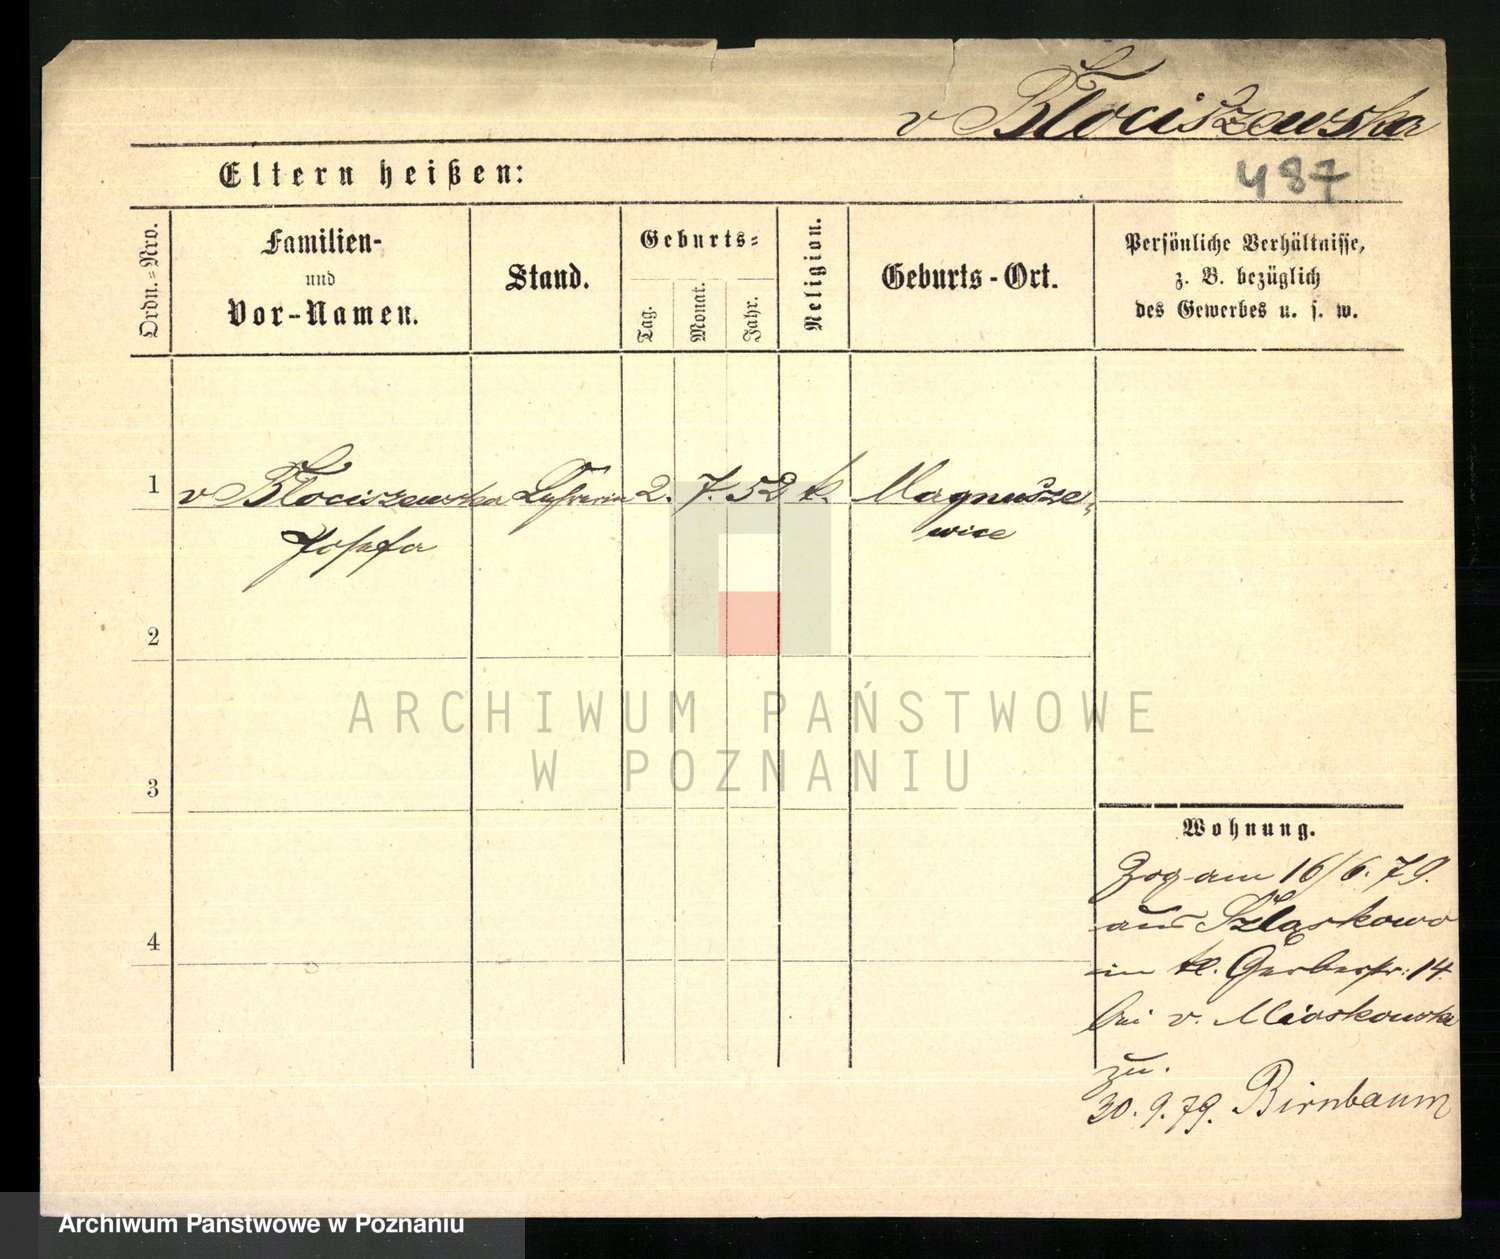 v Błociszewska
Eltern heißen:
487
Ordn.=Nro.
Familien-
und
Vor-Namen.
Stand.
Geburts=
Tag.
Monat.
Jahr.
Religion.
Geburts-Ort.
Persönliche Verhältnisse,
z. B. bezüglich
des Gewerbes u. s. w.
1 v Błociszewska Lehrerin 2. 7. 52 k. Magnusze=
Josefa wice
2
3
4
ARCHIWUM PAŃSTWOWE
W POZNANIU
Wohnung.
Zog am 16/6. 79.
aus Szląskowo
in kl. Gerberstr: 14
bei v. Miaskowska
zu.
30. 9. 79. Birnbaum
Archiwum Państwowe w Poznaniu